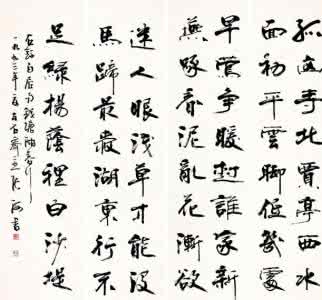 孤山寺北賈亭西水
面初平雲腳低幾處
早鶯爭暖樹誰家新
燕啄春泥亂花漸欲
迷人眼淺草才能沒
馬蹄最愛湖東行不
足綠楊蔭裡白沙堤
白居易錢塘湖春行
一九九三年